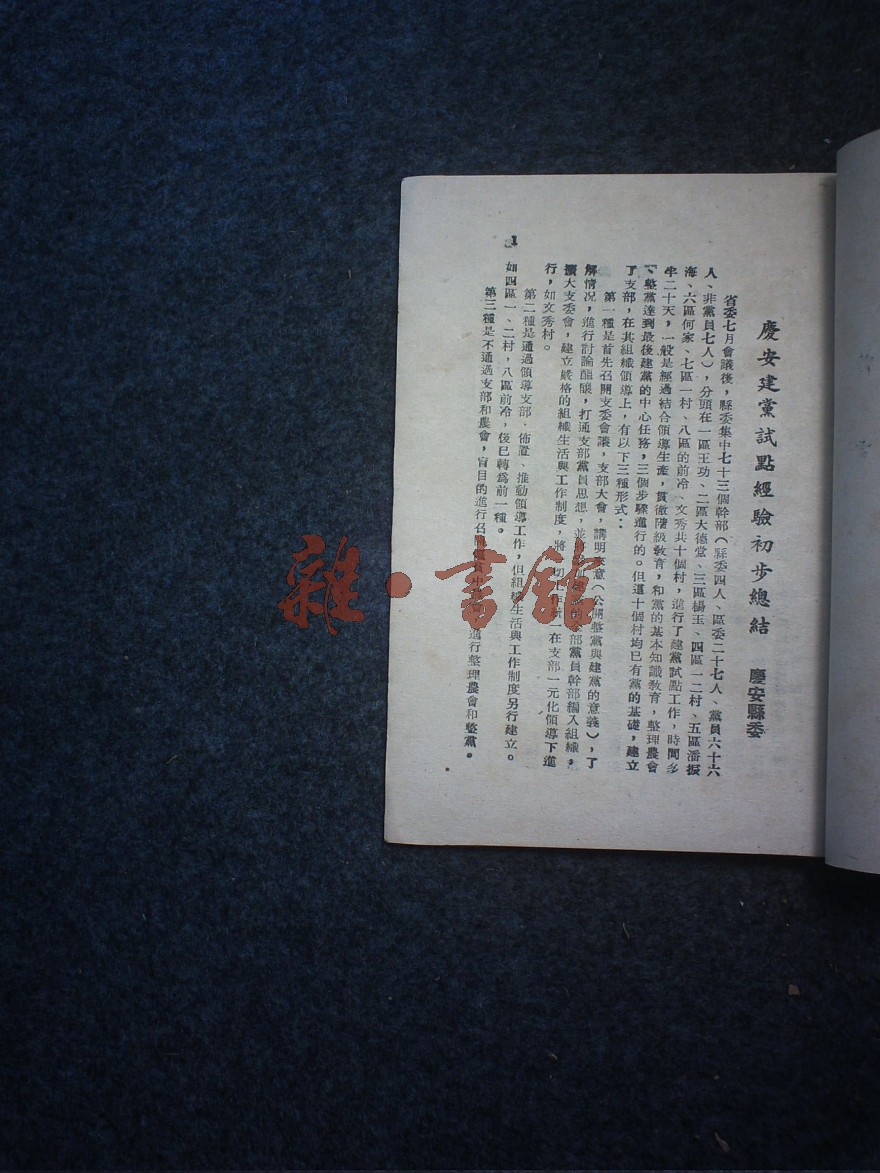 慶安建黨試點經驗初步總結
慶安縣委
省委七月會議後，縣委集中七十三個幹部（縣委四人、區委二十七人、黨員六十六
人、非黨員七人），分頭在一區王功、二區大德堂、三區楊玉、四區一二村、五區潘振
海、六區何家、七區一村、八區的前冷、文秀共十個村，進行了建黨試點工作，時間多
半二十天，一般是經過結合領導生產，貫徹階級教育，和黨的基本知識教育，整理農會
、整黨達到最後建黨的中心任務，三個步驟進行的。但這十個村均已有黨的基礎，建立
了支部，在其組織領導上，有以下三種形式：
第一種是首先召開支委會議，支部大會，講明來意（公開整黨與建黨的意義），了
解情况，進行討論醞釀，打通支部黨員思想，並 部黨員幹部編入組織，
擴大支委會，建立嚴格的組織生活與工作制度，將 在支部一元化領導下進
行，如文秀村。
第二種是通過領導支部、佈置、推動領導工作，但組織生活與工作制度另行建立。
如四區一、二村，八區前冷，後已轉爲前一種。
第三種是不通過支部和農會，盲目的進行召 進行整理農會和整黨。
1
雜·書館